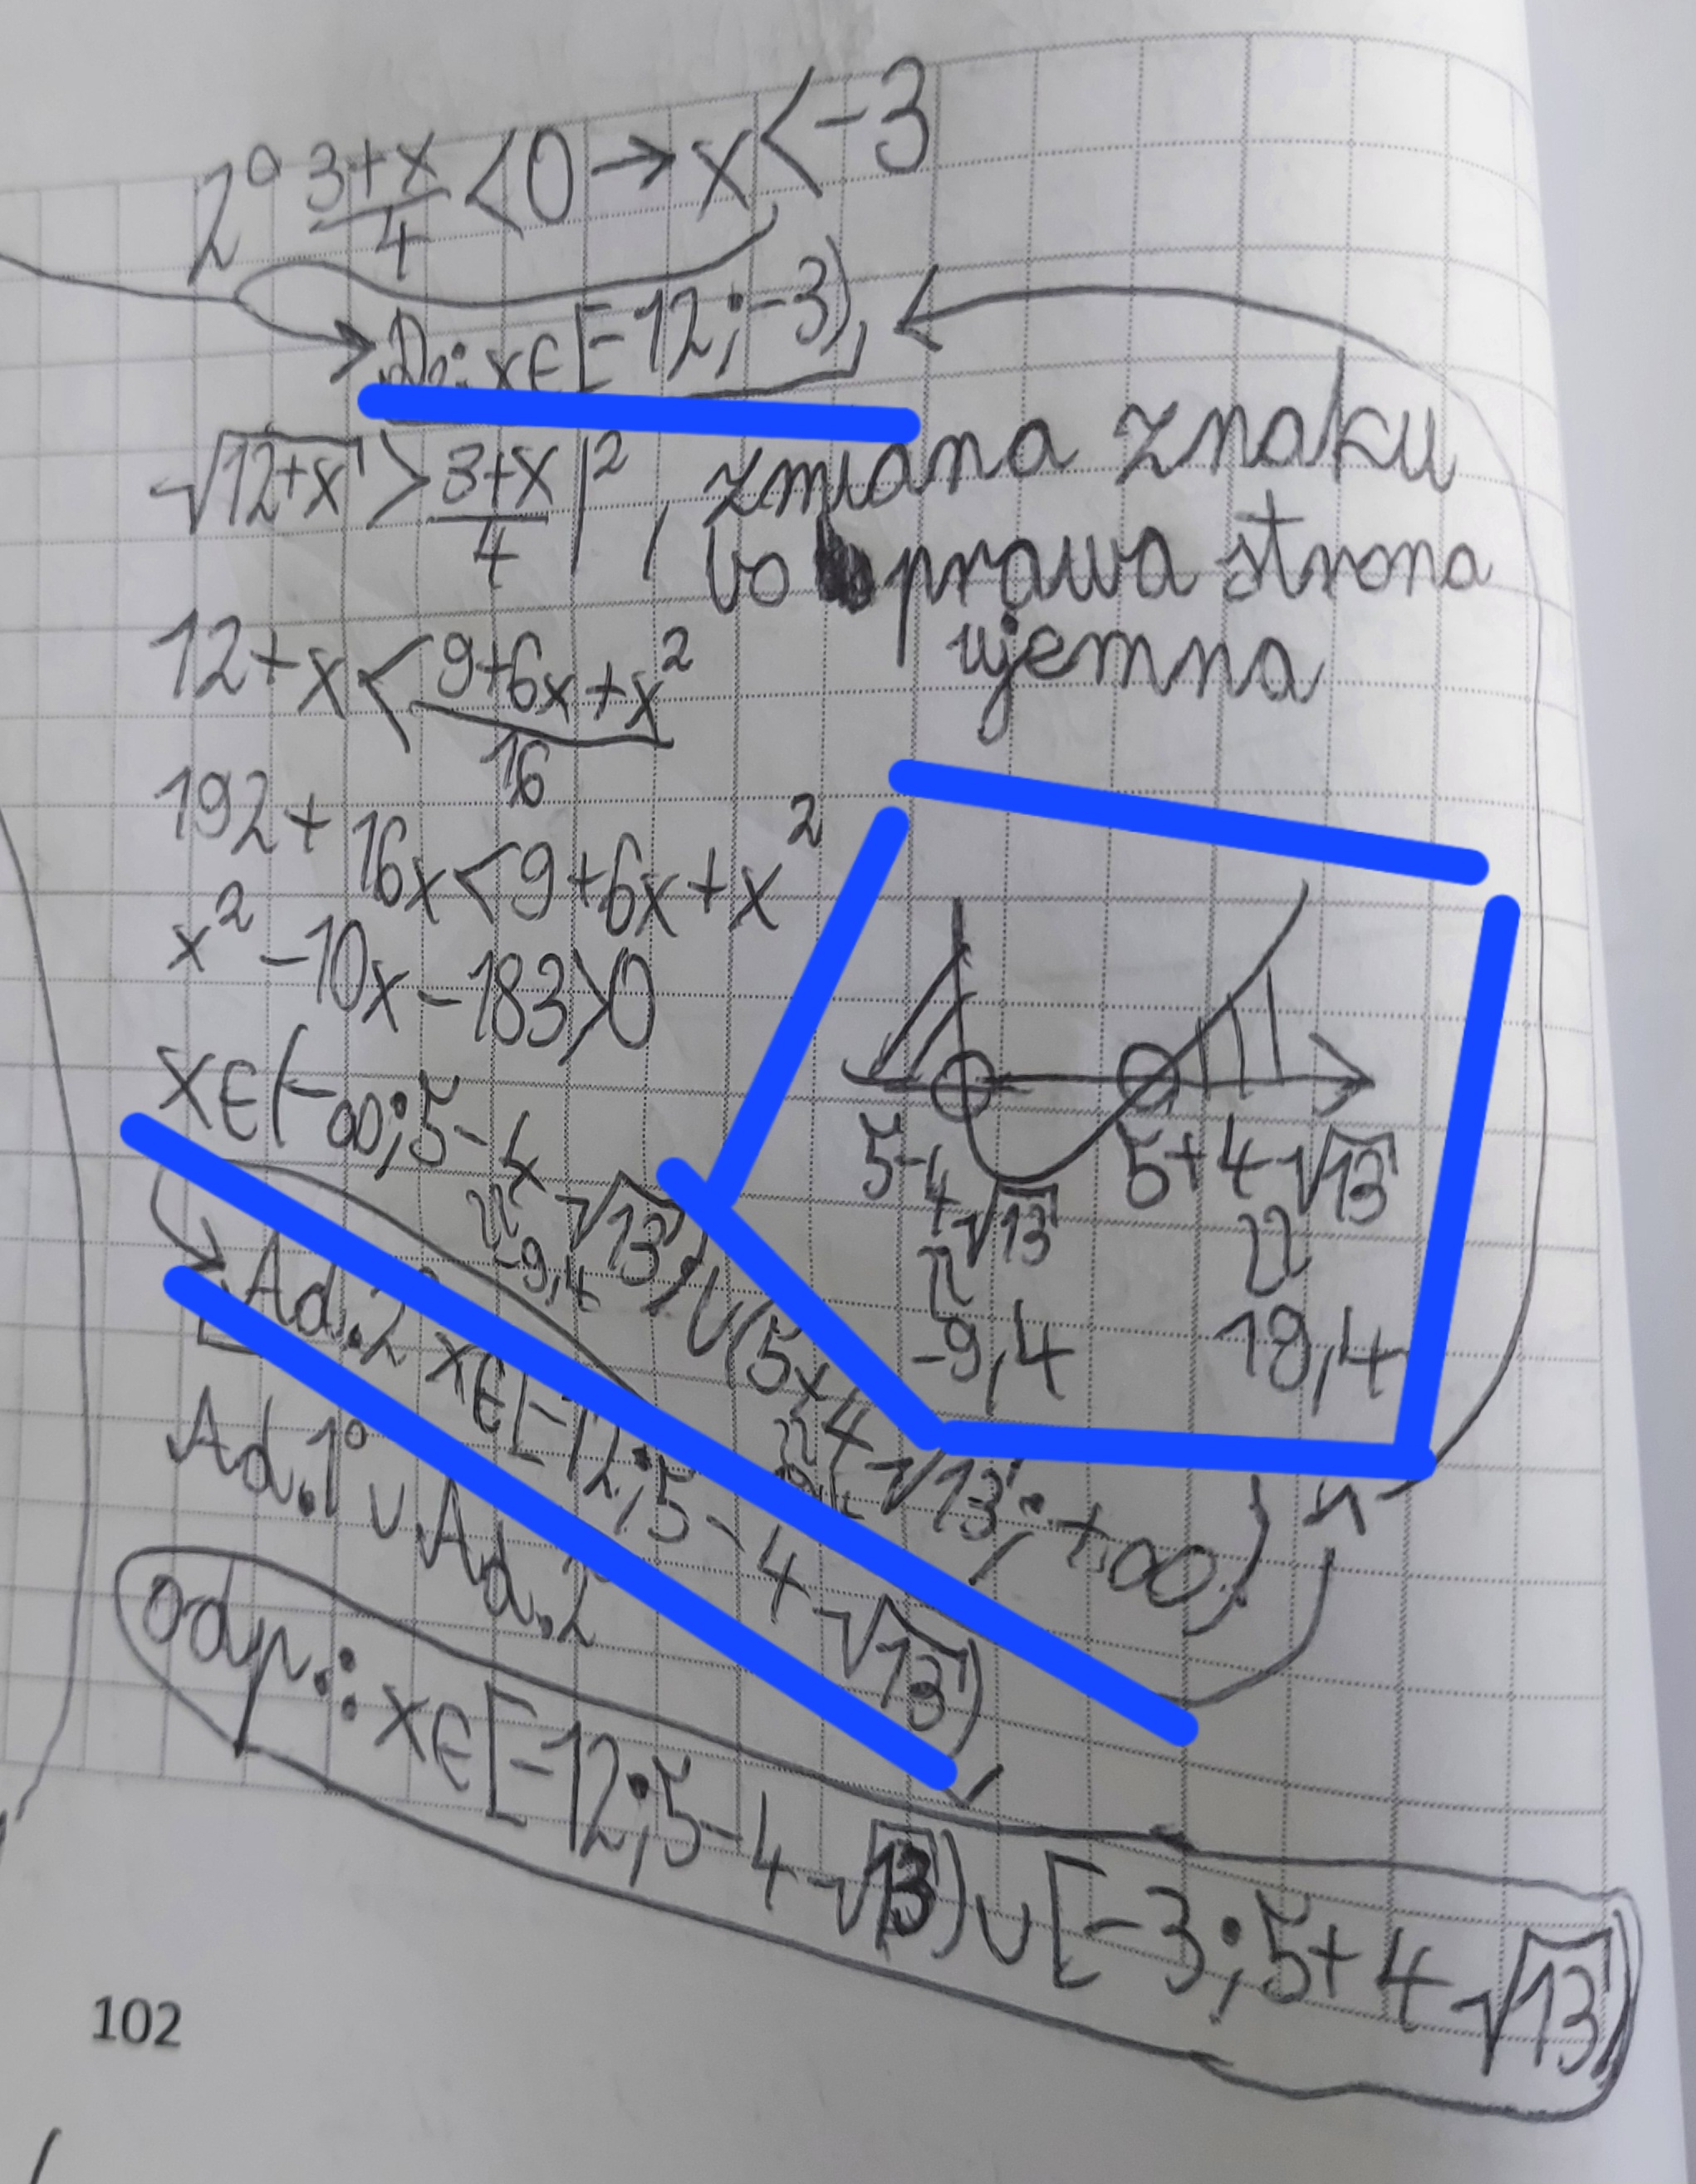 2° 3+x/4 < 0 → x < -3
D₂: x∈[-12; -3)
√12+x > 3+x/4 |², zmiana znaku
bo prawa strona
ujemna
12+x < 9+6x+x²/16
192+16x < 9+6x+x²
x²-10x-183>0
x∈(-∞; 5-4√13) ∪ (5+4√13; +∞)
≈ -9,4
5-4√13 5+4√13
≈ ≈
-9,4 19,4
Ad.2 x∈[-12; 5-4√13)
Ad.1° ∪ Ad.2
odp.: x∈[-12; 5-4√13) ∪ [-3; 5+4√13)
102